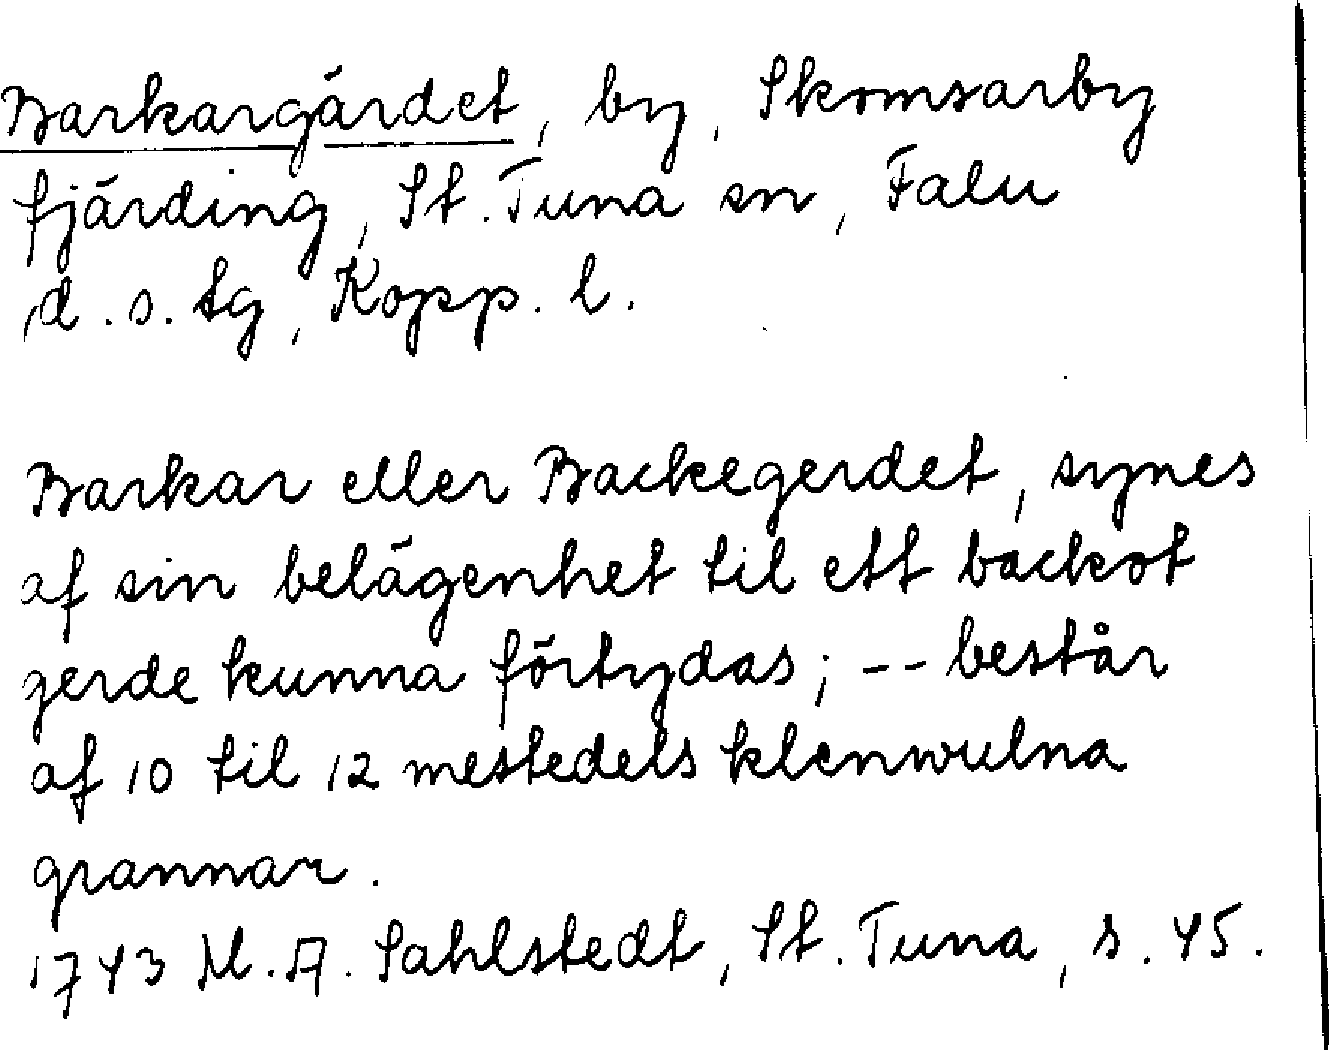 Barkargärdet, by, Skomsarby
fjärding, St. Tuna sn, Falu
d. s. tg, Kopp. l.
Barkar eller Backegerdet, synes
af sin belägenhet til ett backot
gerde kunna förtydas; -- består
af 10 til 12 mestedels klenwulna
grannar.
1743 M. A. Sahlstedt, St. Tuna, s. 45.